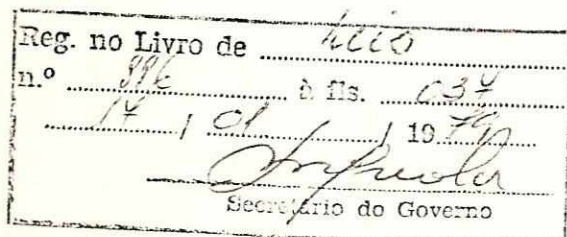 Reg. no Livro de Leis
n.º à fls. 037
17 / 01 / 1979
Secretário do Governo